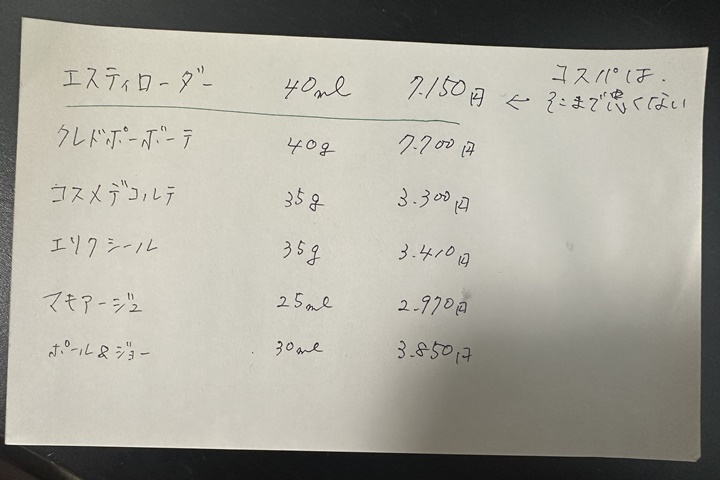 エスティローダー 40ml 7.150円 ← コスパは、
そこまで悪くない
クレドポーボーテ 40g 7.700円
コスメデコルテ 35g 3.300円
エリクシール 35g 3.410円
マキアージュ 25ml 2.970円
ポール&ジョー 30ml 3.850円